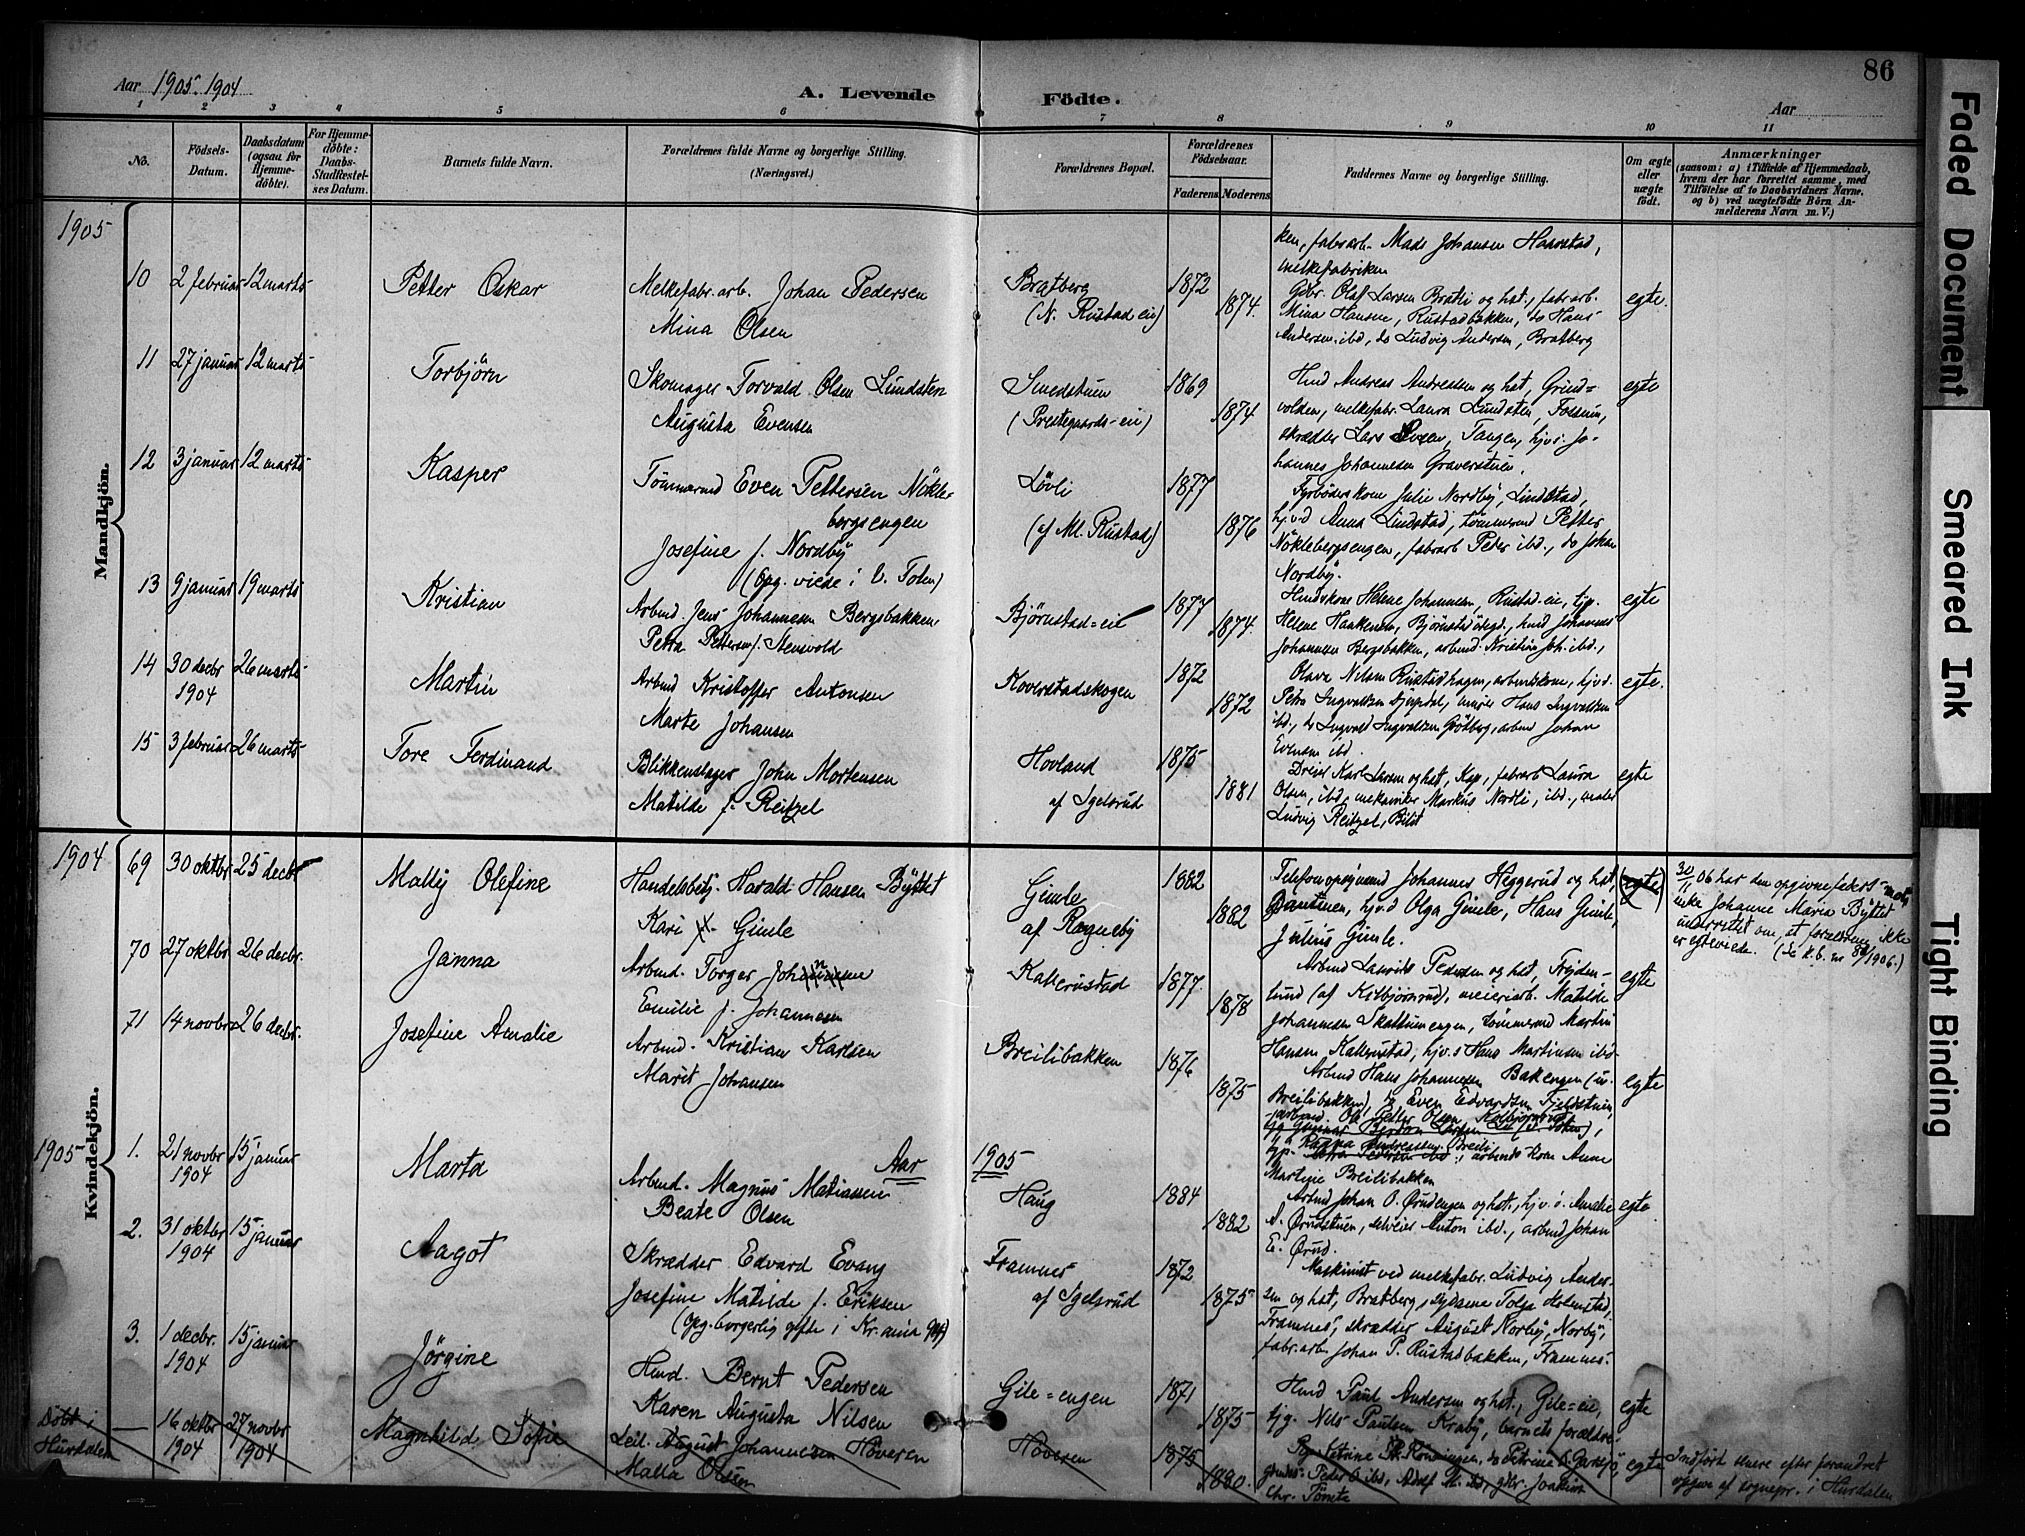 86
Aar 1905. 1904
A. Levende Födte.
Aar
1 2 3 4 5 6 7 8 9 10 11
No.
Födsels-Datum.
Daabsdatum (ogsaa for Hjemmedöbte).
For Hjemmedöbte: Daabs-Stadfæstelses Datum.
Barnets fulde Navn.
Forældrenes fulde Navne og borgerlige Stilling. (Næringsvei.)
Forældrenes Bopæl.
Forældrenes Födselsaar.
Faderens Moderens
Faddernes Navne og borgerlige Stilling.
Om ægte eller uægte födt.
Anmærkninger
(saasom: a) i Tilfælde af Hjemmedaab, hvem der har forrettet samme, med Tilföielse af to Daabsvidners Navne, og b) ved uægtefödte Börn Anmelderens Navn m. V.)
1905
Mandkjön.
ken, fabrarb. Mads Johansen Haarstad,
melkefabriken
10 2 februar 12 marts Petter Oskar
Melkefabr. arb. Johan Pedersen
Mina Olsen
Bratberg
(N. Rustad eie)
1872
1874.
Gbr. Olaf Larsen Bratli og hst., fabr.arb.
Mina Hansen, Rustadbakken, do Hans
Andersen ibd, do Ludvig Andersen, Bratberg
egte.
11 27 januar 12 marts Torbjörn
Skomager Torvald Olsen Lundsten
Augusta Evensen
Smedstuen
(Prestegaards-eie)
1869
1874
Hmd Andreas Andressen og hst, Grind=
volden, melkefabr. Laura Lundsten, Fossum,
skrædder Lars Olsen, Tangen, hjvs. Jo-
hannes Johannesen Graverstuen.
egte
12 3 januar 12 marts Kasper
Tömmermd Even Pettersen Nökle-
bergsengen
Josefine f. Nordby
(Opg. viede i V. Toten)
Lövli
(af Ml. Rustad)
1877
1876
Fyrböderskone Julie Nordby, Lindstad,
hjvd Anna Lindstad, tömmermd Petter
Nöklebergsengen, fabrarb Peder ibd., do Johan
Nordby.
13 9 januar 19 marts Kristian
Arbmd. Jens Johannesen Bergsbakken
Petra Pettersen f. Stensvold
Björnstad=eie
1877
1874.
Husmdskone Helene Johannesen, Rustad-eie, tjp.
Helene Haakensen, Björnstadödegd., hmd Johannes
Johannesen Bergsbakken, arbmd Kristian Joh. ibd.,
egte
14 30 decbr 1904 26 marts Martin
Arbmd Kristoffer Antonsen
Marte Johansen
Koverstadskogen
1872
1872
Olava Nilsen Rustadhagen, arbmdskone, hjvd.
Petra Ingvaldsen Djupdal, murer Hans Ingvaldsen
ibd., do Ingvald Ingvaldsen Grötberg, arbmd Johan
Evensen ibd.
egte.
15 3 februar 26 marts Tore Ferdinand
Blikkenslager John Mortensen
Matilde f. Reitzel
Hovland
af Igelsrud
1875
1881
Dreier Karl Larsen og hst, Kap, fabrarb Laura
Olsen, ibd, mekaniker Markus Nordli, ibd., maler
Ludvig Reitzel, Bilit
egte
1904
Kvindekjön.
69 30 oktbr 25 decbr Mally Olefine
Handelsbetj. Harald Hansen Byttet
Kari Gimle
Gimle
af Rogneby
1882
1882
Telefonopsynsmd Johannes Heggerud og hst,
hjvd Olga Gimle, Hans Gimle,
Julius Gimle.
(egte)
30/11 06 har den opgivne faders mor,
enke Johanne Maria Byttet
underrettet om, at forældrene ikke
er egteviede. (Se k.b. nr 86/1906.)
70 27 oktbr 26 decbr. Janna
Arbmd. Torger Johansen
Emilie f. Johannesen
Kallerustad
1877
1878
Arbmd Laurits Pedersen og hst, Fryden-
lund (af Kilbjörnrud), meieriarb. Matilde
Johannesen Skattumengen, tömmermd Martin
Hansen Kallerustad, hjvs Hans Martinsen ibd.
egte
71 14 novbr 26 decbr. Josefine Amalie
Arbmd. Kristian Karlsen
Marit Johansen
Breilibakken
1876
1875
Arbmd Hans Johannesen Bakengen (u.
Breilibakken), do Even Edvardsen Fjeldstuen
arbmd. Ole Petter Olsen Kolbjörnsrud
tjp. Ragna Andreassen Breili, arbmds kone Anne
Martine Breilibakken
egte
Aar 1905
1905
1. 21 novbr 1904 15 januar Marta
Arbmd. Magnus Matiassen
Beate Olsen
Haug
1884
1882
Arbmd Johan O. Ørudengen og hst., hjv.d. Amalie
A. Ørudstuen, sveiser Anton ibd., arbmd Johan
E. Ørud.
egte
2. 31 oktbr 1904 15 januar Aagot
Skrædder Edvard Evang
Josefine Matilde f. Eriksen
(Opg. borgerlig gifte i Kr.ania 94)
Framnes
af Igelsrud
1872
1875
Maskinist ved melkefabr. Ludvig Ander-
sen og hst, Bratberg, sydame Tolga Holmstad,
Framnes, skrædder August Norby, Norby,
fabr.arb. Johan P. Rustadbakken, Framnes.
3. 1 decbr. 1904 15 januar Jörgine
Hmd. Bernt Pedersen
Karen Augusta Nilsen
Gile=engen
1871
1875
Hmd Paul Andersen og hst, Gile=eie,
tjg. Nils Paulsen Kraby, barnets forældre.
egte
Döbt i Hurdalen — 16 oktbr 1904 27 novbr 1904 Magnhild Sofie
Leil. August Johannesen Höveren
Malla Olsen
Höveren
1875
1880
Peder ibd, Adolf ibd, gbr. Joakim
Chr. Tömte
egte
Indfört senere efter forandret
opgave af sognepr. i Hurdalen
Faded Document
Smeared Ink
Tight Binding